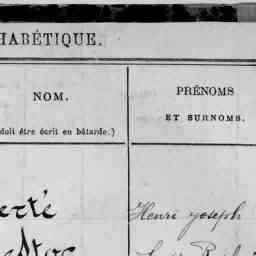 HABÉTIQUE.
NOM.
doit être écrit en bâtarde.)
PRÉNOMS
ET SURNOMS.
erté
Henri Joseph